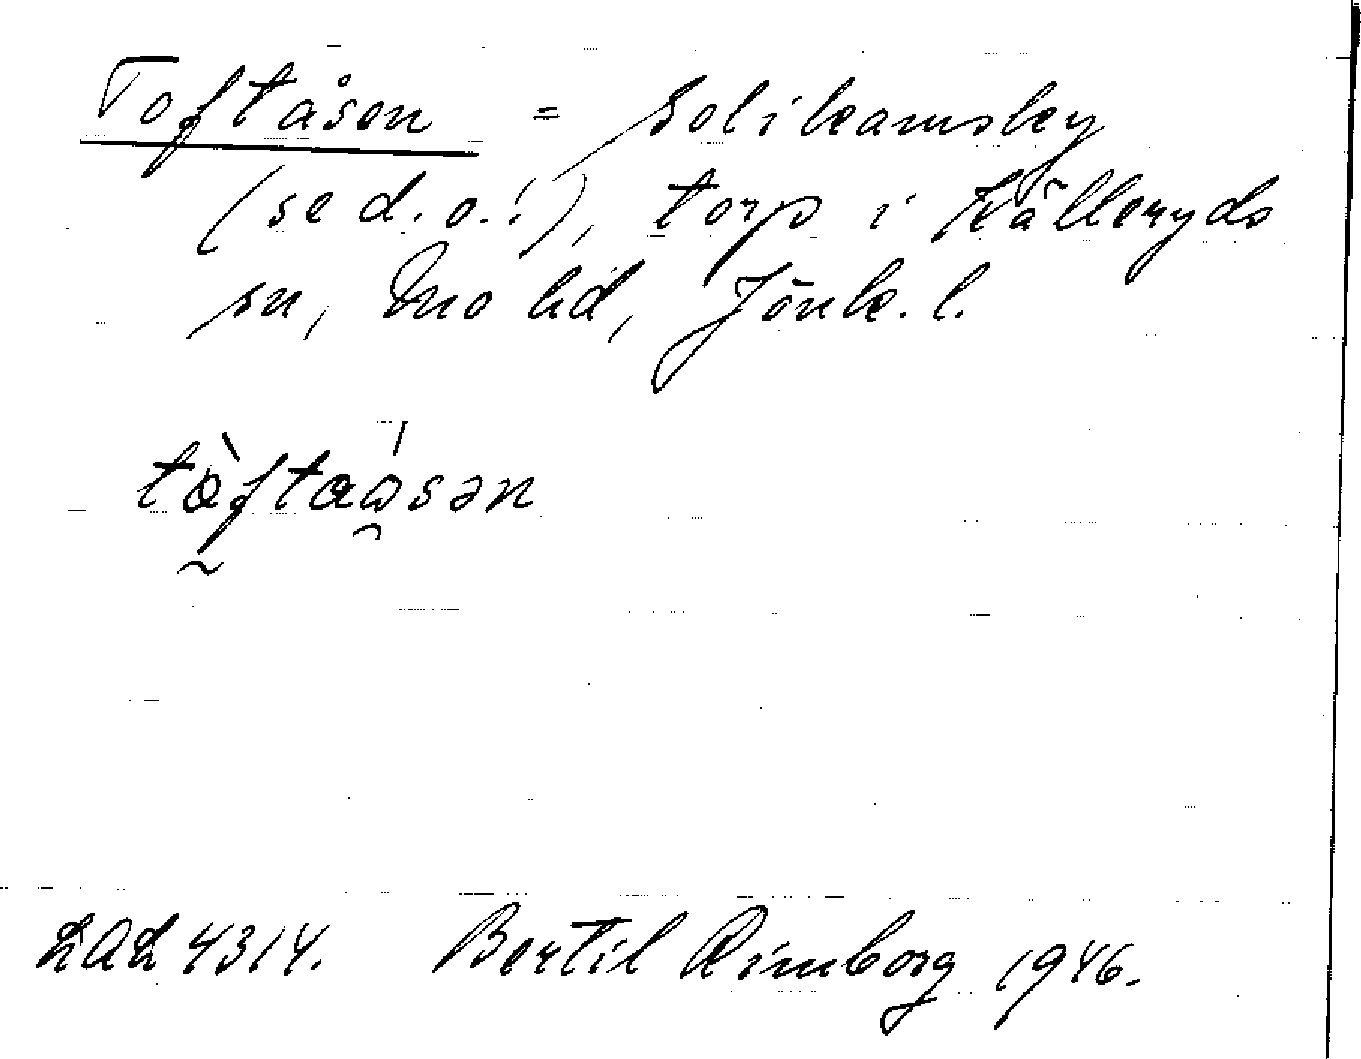 Toftåsen = Solikamsky
(se d.o.!), torp i Källeryds
sn, Mo hd, Jönk. l.
tòftaåsən
LAL 4314. Bertil Rimborg 1946.